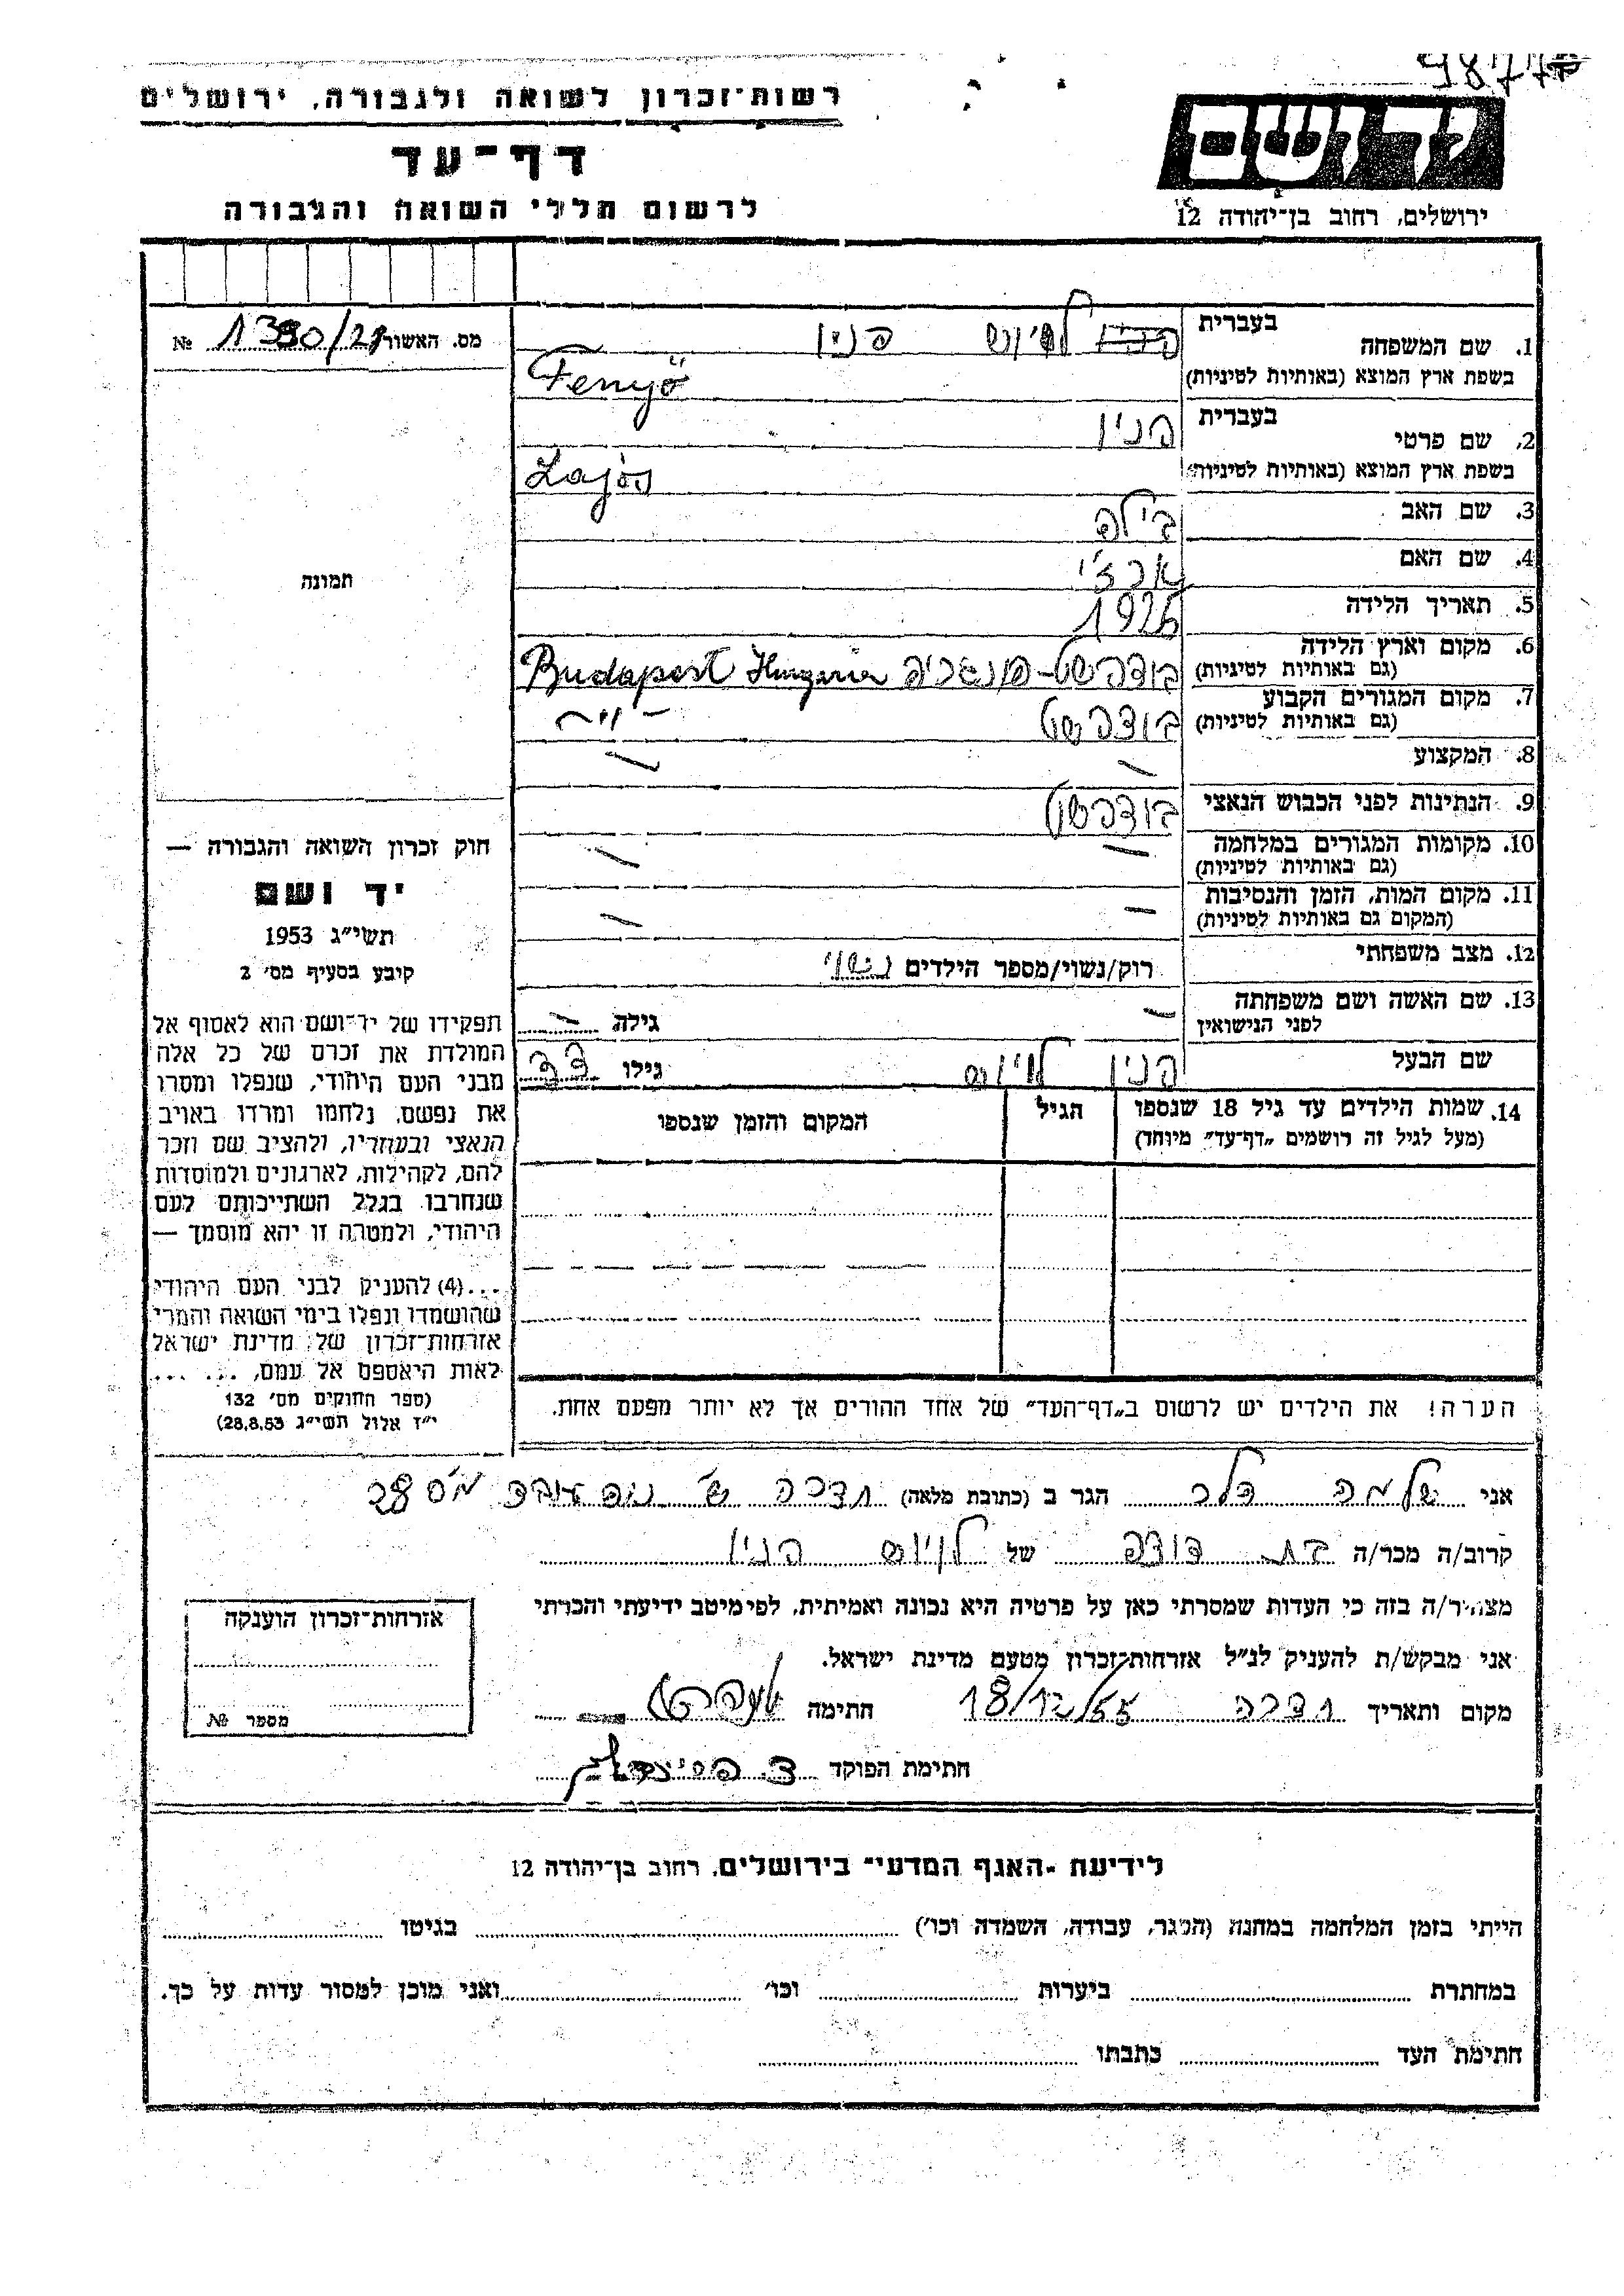 9877
רשות־זכרון לשואה ולגבורה, ירושלים
דף־עד
לרשום חללי השואה והגבורה
יד ושם
ירושלים, רחוב בן־יהודה 12
מס. האשור 1390/21 №
1. שם המשפחה
בעברית לאיוש פניו
בשפת ארץ המוצא (באותיות לטיניות) Fenyö
2. שם פרטי
בעברית פניו
בשפת ארץ המוצא (באותיות לטיניות) Lajos
3. שם האב בילה
4. שם האם
5. תאריך הלידה 1926
6. מקום וארץ הלידה בודפשט - הונגריה Budapest Hungaria
(גם באותיות לטיניות)
7. מקום המגורים הקבוע בודפשט — " —
(גם באותיות לטיניות)
8. המקצוע — —
9. הנתינות לפני הכבוש הנאצי בודפשט
10. מקומות המגורים במלחמה — —
(גם באותיות לטיניות)
11. מקום המות, הזמן והנסיבות — —
(המקום גם באותיות לטיניות)
12. מצב משפחתי רוק/נשוי/מספר הילדים נשוי
13. שם האשה ושם משפחתה — גילה —
לפני הנישואין
שם הבעל פניו לאיוס גילו
14. שמות הילדים עד גיל 18 שנספו
(מעל לגיל זה רושמים "דף־עד" מיוחד)
הגיל
המקום והזמן שנספו
הערה! את הילדים יש לרשום ב"דף־העד" של אחד ההורים אך לא יותר מפעם אחת.
תמונה
חוק זכרון השואה והגבורה —
יד ושם
תשי"ג 1953
קיבע בסעיף מס' 2
תפקידו של יד־ושם הוא לאסוף אל
המולדת את זכרם של כל אלה
מבני העם היהודי, שנפלו ומסרו
את נפשם, נלחמו ומרדו באויב
הנאצי ובעוזריו, ולהציב שם וזכר
להם, לקהילות, לארגונים ולמוסדות
שנחרבו בגלל השתייכותם לעם
היהודי, ולמטרה זו יהא מוסמך —
...(4) להעניק לבני העם היהודי
שהושמדו ונפלו בימי השואה והמרי
אזרחות־זכרון של מדינת ישראל
לאות היאספם אל עמם, ... ...
(ספר החוקים מס' 132
י"ז אלול תשי"ג 28.8.53)
אני שלמה הגר ב (כתובת מלאה) חדרה
קרוב/ה מכר/ה בת דודה של לאיוס פניו
מצהיר/ה בזה כי העדות שמסרתי כאן על פרטיה היא נכונה ואמיתית, לפי מיטב ידיעתי והכרתי
אני מבקש/ת להעניק לנ"ל אזרחות־זכרון מטעם מדינת ישראל.
מקום ותאריך חדרה 18/12/55 חתימה
חתימת הפוקד
אזרחות־זכרון הוענקה
מספר №
לידיעת "האגף המדעי" בירושלים, רחוב בן־יהודה 12
הייתי בזמן המלחמה במחנה (הסגר, עבודה, השמדה וכו') בגיטו
במחתרת ביערות וכו' ואני מוכן למסור עדות על כך.
חתימת העד כתבתו